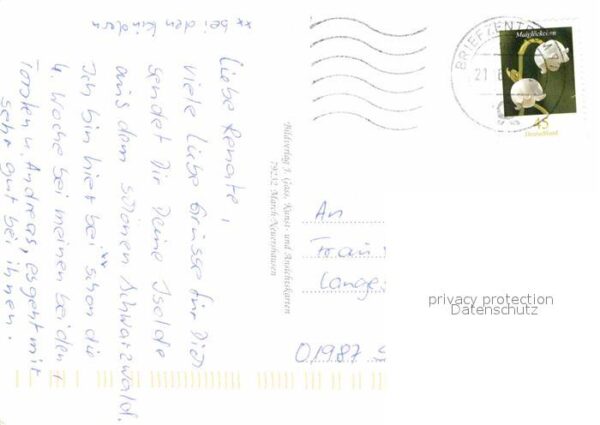 Liebe Renate,
viele liebe Grüsse für Dich
sendet Dir Deine Isolde
aus dem schönen Schwarzwald.
Ich bin hier bei xx schon die
4. Woche bei meinen beiden +
Torsten u. Andreas, es geht mir
sehr gut bei ihnen.
xx bei den
Kin
der
Bildverlag J. Gass, Kunst- und Ansichtskarten
79232 March-Neuershausen
BRIEFZENTR
21
Maiglöckchen
45
Deutschland
An
Frau
Lange
01987
privacy protection
Datenschutz